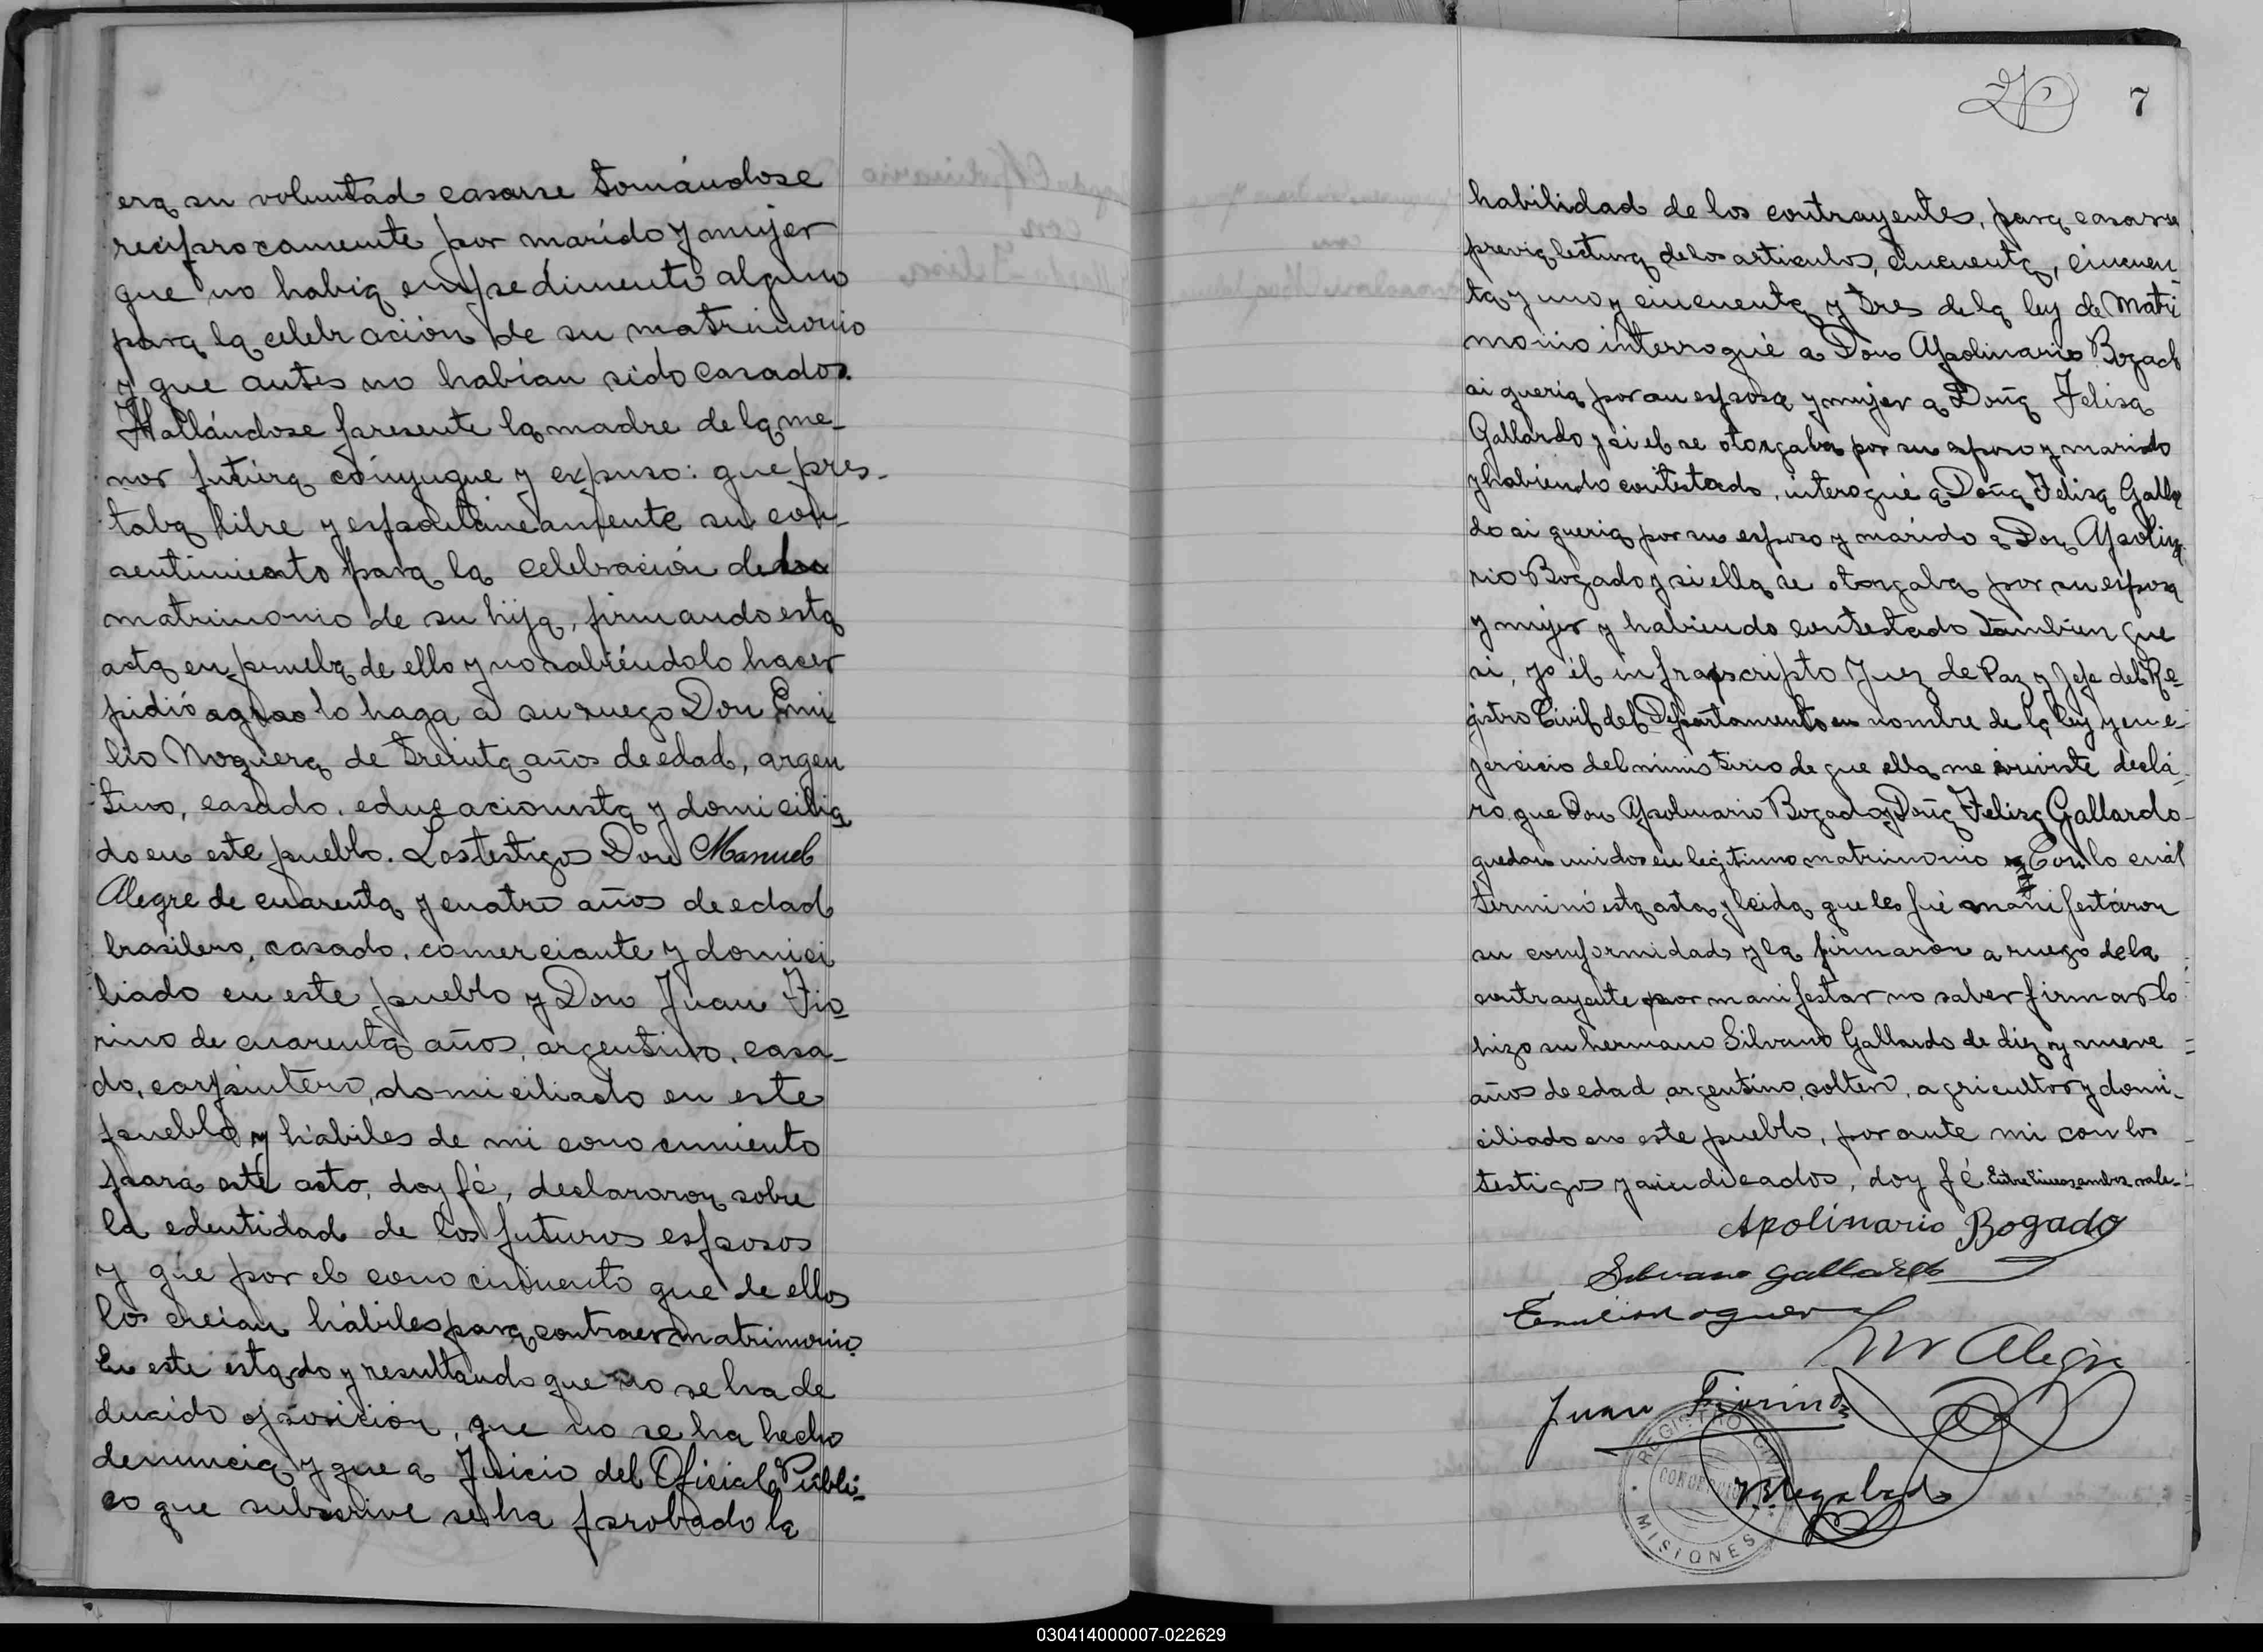 era su voluntad casarse tomándose
reciprocamente por marido y mujer
que no habia empedimento alguno
para la celebración de su matrimonio
y que antes no habían sido casados.
Hallándose presente la madre de la me-
nor futura cónyugue y expuso: que pres-
taba libre y espontáneamente su con-
sentimiento para la celebración de
matrimonio de su hija, firmando esta
acta en prueba de ello y no sabiéndolo hacer
pidió lo haga a su ruego Don Emi
lio Noguera de treinta años de edad, argen
tino, casado, educacionista y domicilia
do en este pueblo. Los testigos Don Manuel
Alegre de cuarenta y cuatro años de edad
brasilero, casado, comerciante y domici
liado en este pueblo y Don Juan Fio-
rino de cuarenta años, argentino, casa-
do, carpintero, domiciliado en este
pueblo y hábiles de mi conocimiento
para este acto, doy fé, declararon sobre
la edentidad de los futuros esposos
y que por el conocimiento que de ellos
los creían hábiles para contraer matrimonio.
En este estado y resultando que no se ha de
ducido oposición, que no se ha hecho
denuncia y que a Juicio del Oficial Públi-
co que subscrive se ha probado la
7
habilidad de los contrayentes, para casarse
previa lectura de los articulos, cincuenta, cincuen-
ta y uno y cincuenta y tres de la ley de Matri
monio interrogué a Don Apolinario Bogado
si queria por su esposa y mujer a Doña Felisa
Gallardo y si el se otorgaba por su esposo y marido
y habiendo contestado, interogué a Doña Felisa Galla
do si queria por su esposo y marido a Don Apolina
rio Bogado y si ella se otorgaba por su esposa
y mujer y habiendo contestado tambien que
si, yo él infrascripto Juez de Paz y Jefe del Re-
gistro Civil del Departamento en nombre de la ley y en e-
jercicio del ministerio de que ella me inviste declá-
ro que Don Apolinario Bogado y Doña Felisa Gallardo
quedan unidos en legitimo matrimonio Con lo cuál
terminó esta acta y leida que les fué manifestáron
su conformidad y la firmaron a ruego de la
contrayente por manifestar no saber firmar lo
hizo su hermano Silvano Gallardo de diez y nueve
años de edad, argentino, soltero, agricultor y domi-
ciliado en este pueblo, por ante mi con los
testigos ya indicados, doy fé. Entre lineas ambos vale-
Apolinario Bogado
Silvano Gallardo
Emilio Noguera
M Alegre
Juan Fiorino
REGISTRO CIVIL
CONCEPCION
MISIONES
030414000007-022629